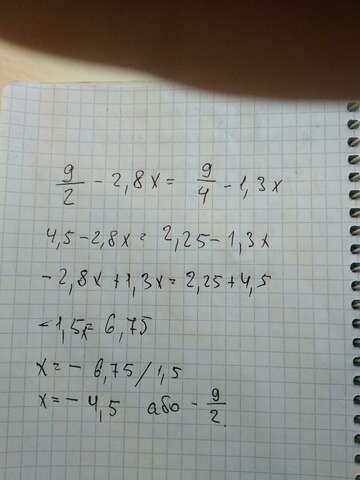 9/2 - 2,8x = 9/4 - 1,3x
4,5 - 2,8x = 2,25 - 1,3x
- 2,8x + 1,3x = 2,25 + 4,5
- 1,5x = 6,75
x = - 6,75 / 1,5
x = - 4,5 або - 9/2